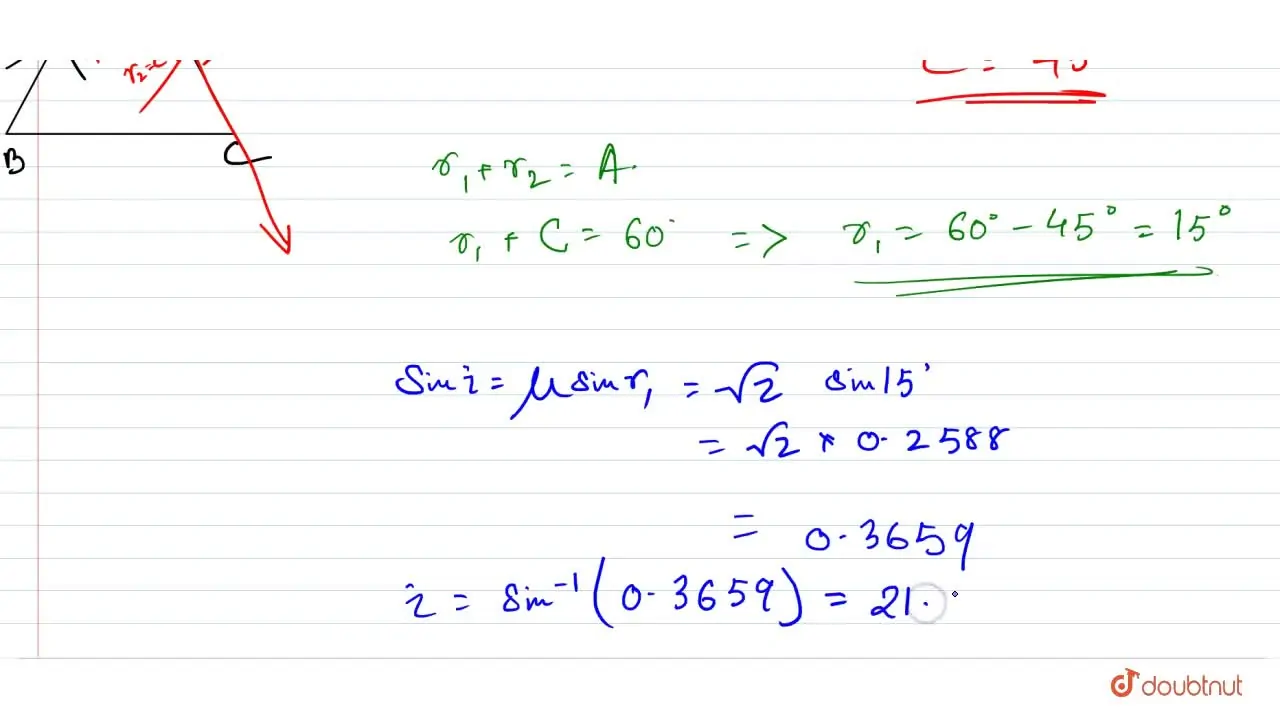 r₂=c
C = 45
B
C
r₁ + r₂ = A.
r₁ + C = 60° => r₁ = 60° - 45° = 15°
Sin i = μ sin r₁ = √2 sin 15°
= √2 × 0.2588
= 0.3659
i = sin⁻¹ (0.3659) = 21.
doubtnut